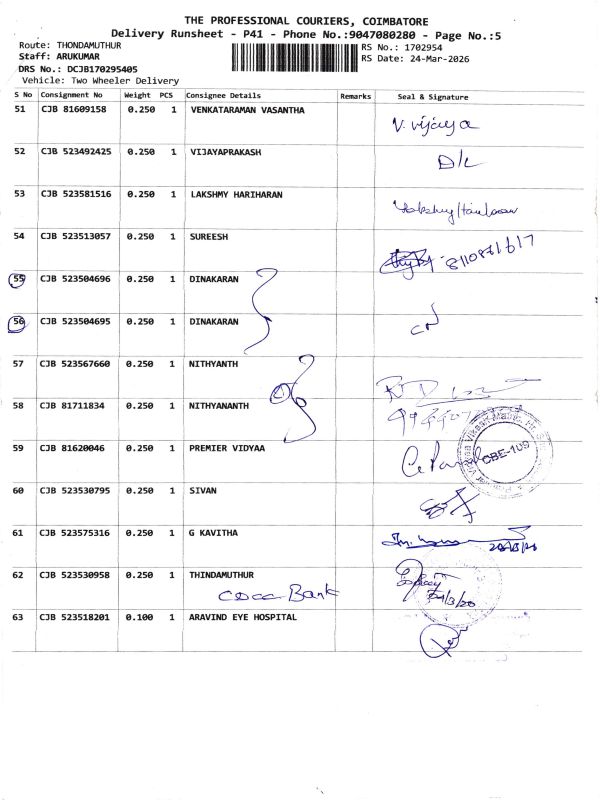 THE PROFESSIONAL COURIERS, COIMBATORE
Delivery Runsheet - P41 - Phone No.:9047080280 - Page No.:5
Route: THONDAMUTHUR RS No.: 1702954
Staff: ARUKUMAR RS Date: 24-Mar-2026
DRS No.: DCJB170295405
Vehicle: Two Wheeler Delivery
S No Consignment No Weight PCS Consignee Details Remarks Seal & Signature
51 CJB 81609158 0.250 1 VENKATARAMAN VASANTHA V. vijaya
52 CJB 523492425 0.250 1 VIJAYAPRAKASH D/L
53 CJB 523581516 0.250 1 LAKSHMY HARIHARAN
54 CJB 523513057 0.250 1 SUREESH 8110871617
55 CJB 523504696 0.250 1 DINAKARAN
56 CJB 523504695 0.250 1 DINAKARAN
57 CJB 523567660 0.250 1 NITHYANTH
58 CJB 81711834 0.250 1 NITHYANANTH
59 CJB 81620046 0.250 1 PREMIER VIDYAA CBE-109
60 CJB 523530795 0.250 1 SIVAN
61 CJB 523575316 0.250 1 G KAVITHA
62 CJB 523530958 0.250 1 THINDAMUTHUR
Bank
63 CJB 523518201 0.100 1 ARAVIND EYE HOSPITAL